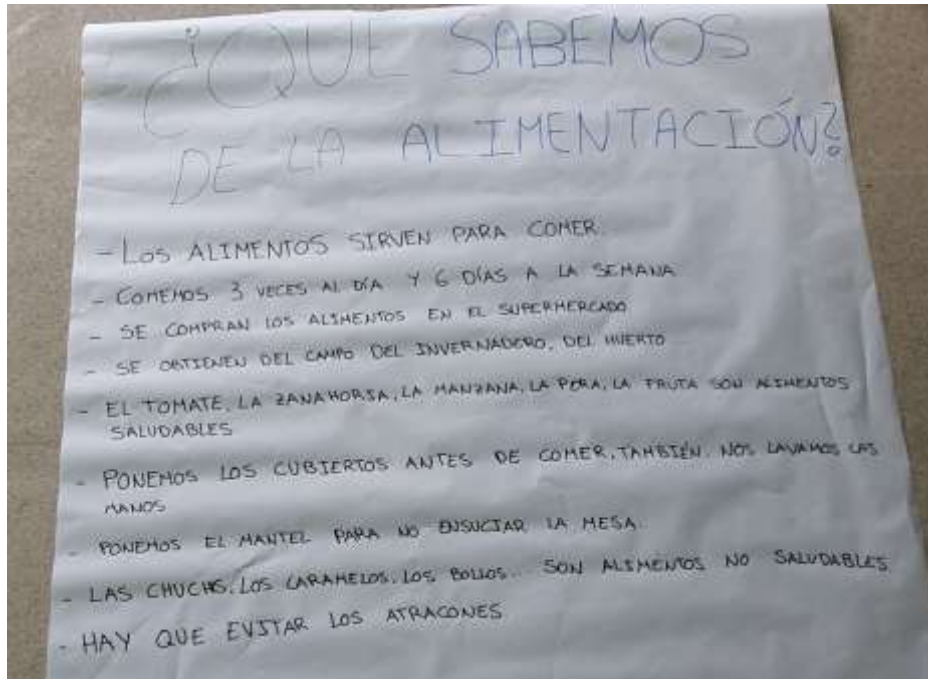 ¿QUE SABEMOS
DE LA ALIMENTACIÓN?
- LOS ALIMENTOS SIRVEN PARA COMER.
- COMEMOS 3 VECES AL DÍA Y 6 DÍAS A LA SEMANA
- SE COMPRAN LOS ALIMENTOS EN EL SUPERMERCADO
- SE OBTIENEN DEL CAMPO DEL INVERNADERO, DEL HUERTO
- EL TOMATE, LA ZANAHORIA, LA MANZANA, LA PERA, LA FRUTA SON ALIMENTOS
SALUDABLES
- PONEMOS LOS CUBIERTOS ANTES DE COMER, TAMBIÉN. NOS LAVAMOS LAS
MANOS
- PONEMOS EL MANTEL PARA NO ENSUCIAR LA MESA.
- LAS CHUCHS, LOS CARAMELOS, LOS BOLLOS.. SON ALIMENTOS NO SALUDABLES
- HAY QUE EVITAR LOS ATRACONES